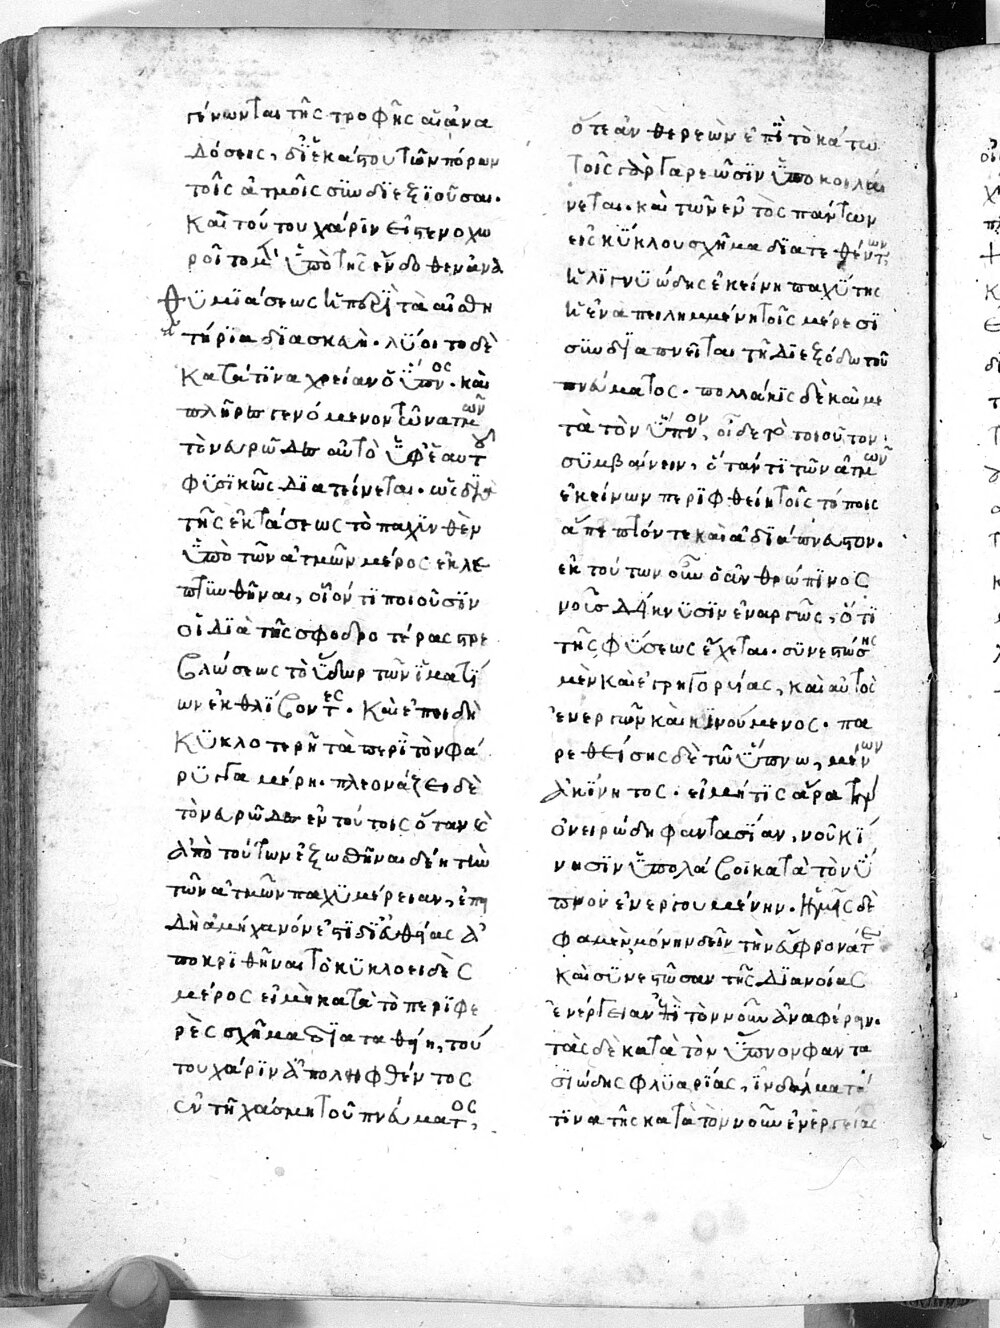 γίνωνται τῆς τροφῆς αἱ ἀνα
δόσεις, δι' ἑκάστου τῶν πόρων
τοῖς ἀτμοῖς συνδιεξιοῦσαι.
καὶ τούτου χάριν εἰπεν οχω
ροῖτο μ ὑπὸ τῆς ἔνδοθεν ἀνα
θυμιάσεως ἡ περὶ τὰ αἰσθη
τήρια διασκευὴ. λύοιτο δὲ
κατά τινα χρείαν ὁ ὕπνος. καὶ
πλῆρες γενόμενον τῶν ἀτμῶν
τὸ νευρῶδες αὐτὸ ὑφ' ἑαυτοῦ
φυσικῶς διατείνεται. ὡς διὰ
τῆς ἐκτάσεως τὸ παχυνθὲν
ὑπὸ τῶν ἀτμῶν μέρος ἐκλε
πτυνθῆναι, οἷόν τι ποιοῦσιν
οἱ διὰ τῆς σφοδροτέρας στρε
βλώσεως τὸ ὕδωρ τῶν ἱματί
ων ἐκθλίβοντες. καὶ ἐπειδὴ
κυκλοτερῆ τὰ περὶ τὸν φά
ρυγγα μέρη. πλεονάζει δὲ
τὸ νευρῶδες ἐν τούτοις ὅταν
ἀπὸ τούτων ἐξωθῆναι δέῃ τὴν
τῶν ἀτμῶν παχυμέρειαν, ἐπει
δὴ ἀμήχανόν ἐστι δι' εὐθείας ἀ
ποκριθῆναι τὸ κυκλοειδὲς
μέρος εἰ μὴ κατὰ τὸ περιφε
ρὲς σχῆμα διαταθείη, τού
του χάριν ἀποληφθέντος
ἐν τῇ χάσμῃ τοῦ πνεύματος,
ὅτε ἀνθερεὼν ἐπὶ τὸ κάτω
τοῖς γαργαρεῶσιν ὑποκοιλαί
νεται. καὶ τῶν ἐντὸς πάντων
εἰς κύκλου σχῆμα διατεθέντων
ἡ λιγνυώδης ἐκείνη παχύτης
ἡ ἐναπειλημμένη τοῖς μέρεσι
συνδιαπνεῖται τῇ διεξόδῳ τοῦ
πνεύματος. πολλάκις δὲ καὶ με
τὰ τὸν ὕπνον, οἶδε τὸ τοιοῦτον
συμβαίνειν, ὅταν τι τῶν ἀτμῶν
ἐκείνων περιφθείη τοῖς τόποις
ἄπεπτόν τε καὶ ἀδιάπνευστον.
ἐκ τούτων οὖν ὁ ἀνθρώπινος
νοῦς δείκνυσιν ἐναργῶς, ὅτι
τῆς φύσεως ἔχεται. συνεστώσης
μὲν καὶ ἐγρηγορυίας, καὶ αὐτὸς
ἐνεργῶν καὶ κινούμενος. πα
ρεθείσης δὲ τῷ ὕπνῳ, μένων
ἀκίνητος. εἰ μή τις ἄρα τὴν
ὀνειρώδη φαντασίαν, νοῦ κί
νησιν ὑπολάβοι κατὰ τὸν ὕ
πνον ἐνεργουμένην. ἡμεῖς δέ
φαμεν μόνην δεῖν τὴν ἔμφρονά τε
καὶ συνεστῶσαν τῆς διανοίας
ἐνέργειαν ἐπὶ τὸν νοῦν ἀναφέρειν.
τὰς δὲ κατὰ τὸν ὕπνον φαντα
σιώδης φλυαρίας, ἰνδάλματά
τινα τῆς κατὰ τὸν νοῦν ἐνεργείας